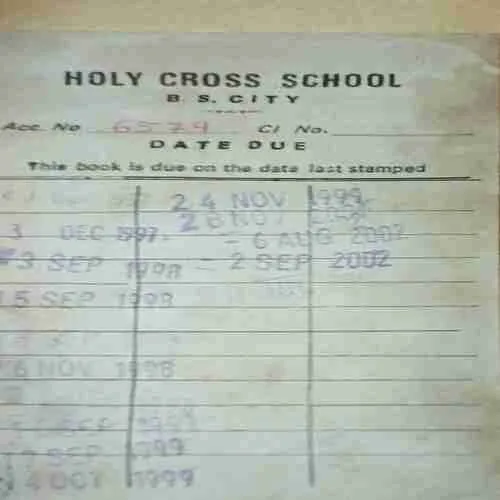 HOLY CROSS SCHOOL
B. S. CITY
Acc. No 6574 Cl No.
DATE DUE
This book is due on the date last stamped
24 NOV 1999
3 DEC 1997
- 6 AUG 2002
3 SEP 1998 - 2 SEP 2002
15 SEP 1998
6 NOV 1998
SEP 1999
SEP 1999
4 OCT 1999